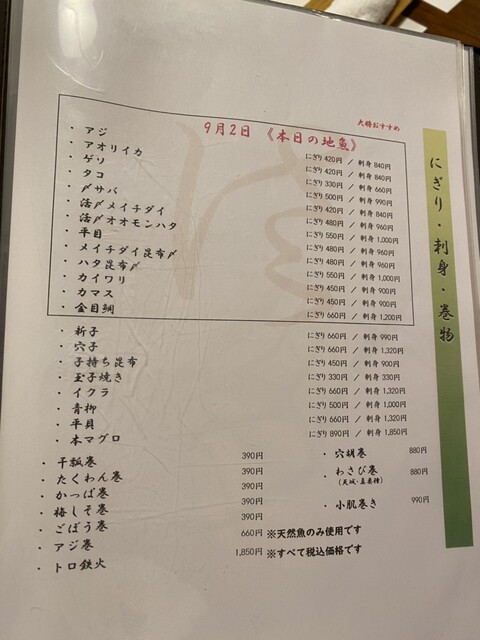 大将おすすめ
9月2日 《本日の地魚》
にぎり・刺身・巻物
・ アジ にぎり 420円 / 刺身 840円
・ アオリイカ にぎり 420円 / 刺身 840円
・ ゲソ にぎり 330円 / 刺身 660円
・ タコ にぎり 500円 / 刺身 990円
・ 〆サバ にぎり 420円 / 刺身 840円
・ 活〆メイチダイ にぎり 480円 / 刺身 960円
・ 活〆オオモンハタ にぎり 550円 / 刺身 1,000円
・ 平目 にぎり 480円 / 刺身 960円
・ メイチダイ昆布〆 にぎり 480円 / 刺身 960円
・ ハタ昆布〆 にぎり 550円 / 刺身 1,000円
・ カイワリ にぎり 450円 / 刺身 900円
・ カマス にぎり 450円 / 刺身 900円
・ 金目鯛 にぎり 660円 / 刺身 1,200円
・ 新子 にぎり 660円 / 刺身 990円
・ 穴子 にぎり 660円 / 刺身 1,320円
・ 子持ち昆布 にぎり 450円 / 刺身 900円
・ 玉子焼き にぎり 330円 / 刺身 330円
・ イクラ にぎり 660円 / 刺身 1,320円
・ 青柳 にぎり 500円 / 刺身 1,000円
・ 平貝 にぎり 660円 / 刺身 1,320円
・ 本マグロ にぎり 890円 / 刺身 1,850円
・ 干瓢巻 390円
・ たくわん巻 390円
・ かっぱ巻 390円
・ 梅しそ巻 390円
・ ごぼう巻 390円
・ アジ巻 660円
・ トロ鉄火 1,850円
・ 穴胡巻 880円
・ わさび巻 880円
(天城・真妻種)
・ 小肌巻き 990円
※天然魚のみ使用です
※すべて税込価格です